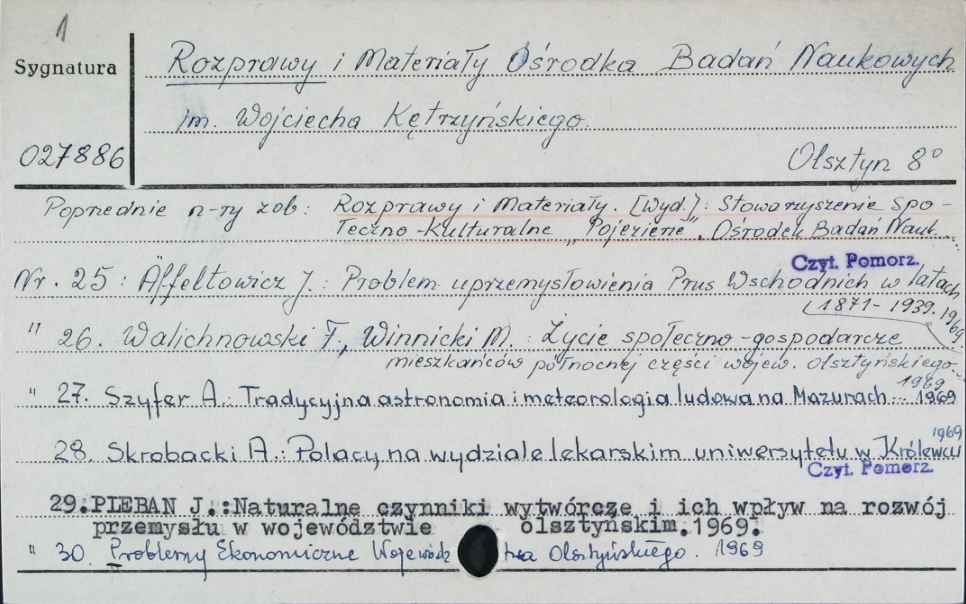 1
Sygnatura
Rozprawy i Materiały Ośrodka Badań Naukowych
im. Wojciecha Kętrzyńskiego.
027886
Olsztyn 8°
Poprzednie n-ry zob: Rozprawy i Materiały. [Wyd.]: Stowarzyszenie Spo-
łeczno-Kulturalne "Pojezierze". Ośrodek Badań Nauk...
Czyt. Pomorz.
Nr. 25: Affeltowicz J.: Problem uprzemysłowienia Prus Wschodnich w latach
1871-1939. 1969.
" 26. Walichnowski T., Winnicki M.: Życie społeczno-gospodarcze
mieszkańców północnej części wojew. Olsztyńskiego.
1969
" 27. Szyfer A.: Tradycyjna astronomia i meteorologia ludowa na Mazurach... 1969
28. Skrobacki A.: Polacy na wydziale lekarskim uniwersytetu w Królewcu
1969
Czyt. Pomorz.
29.PIEBAN J.:Naturalne czynniki wytwórcze i ich wpływ na rozwój
przemysłu w województwie olsztyńskim.1969.
" 30. Problemy Ekonomiczne Wojewódz twa Olsztyńskiego. 1969